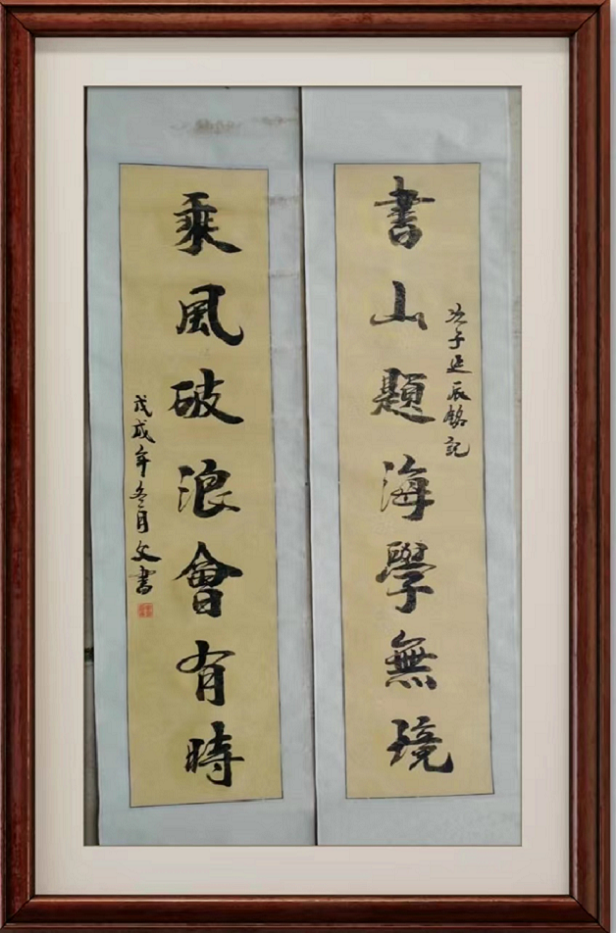 次子延辰銘記
書山題海學無境
乘風破浪會有時
戊戌年冬月父書